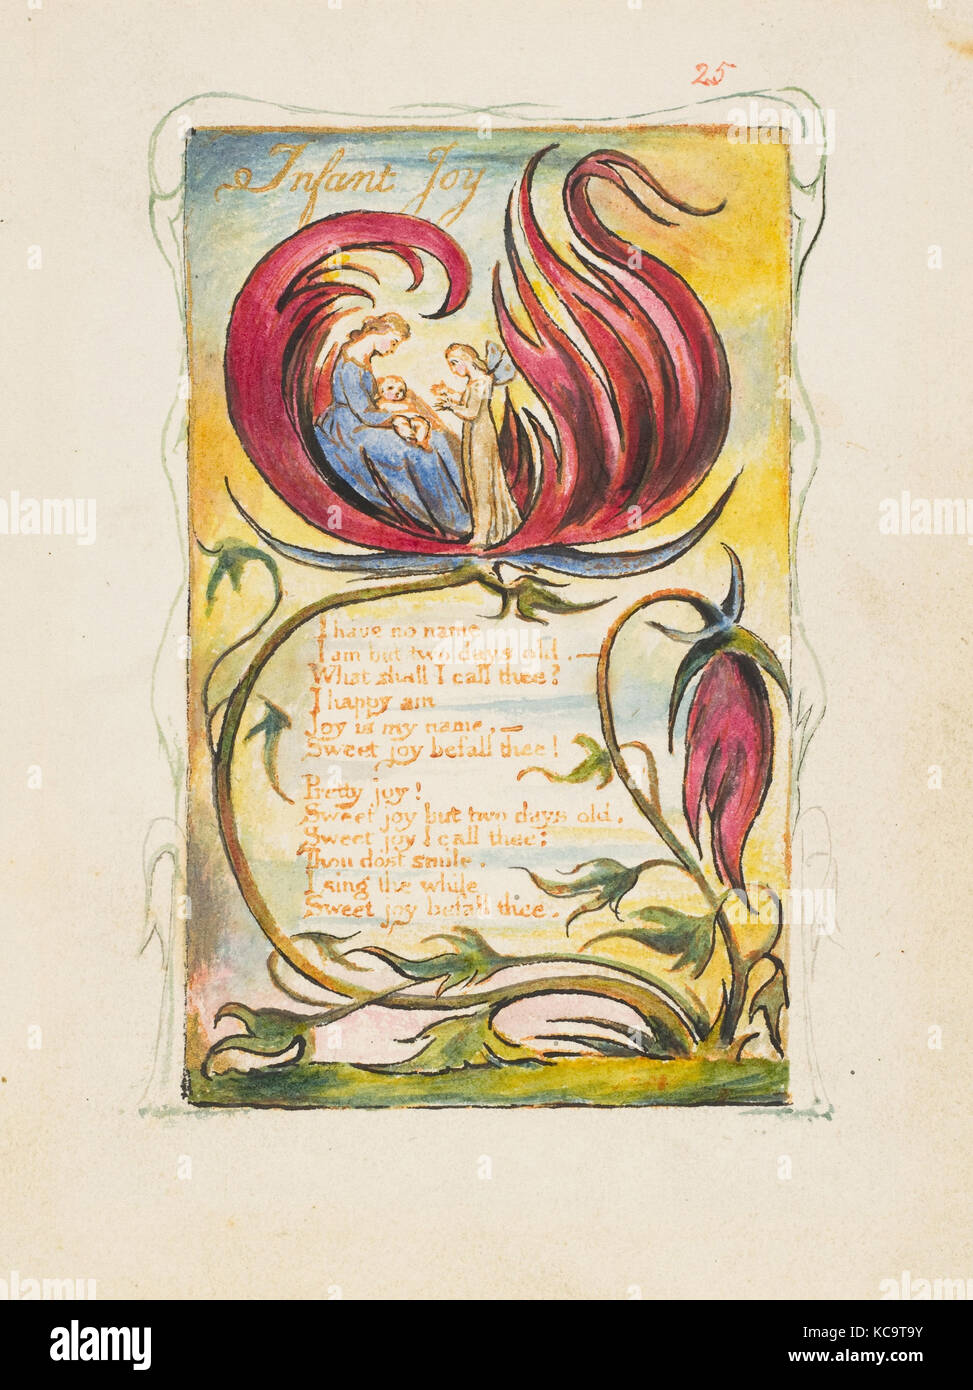 25
Infant Joy
I have no name
I am but two days old. —
What shall I call thee?
I happy am
Joy is my name, —
Sweet joy befall thee!
Pretty joy!
Sweet joy but two days old.
Sweet joy I call thee:
Thou dost smile.
I sing the while
Sweet joy befall thee.
alamy
Image ID: KC9T9Y
www.alamy.com